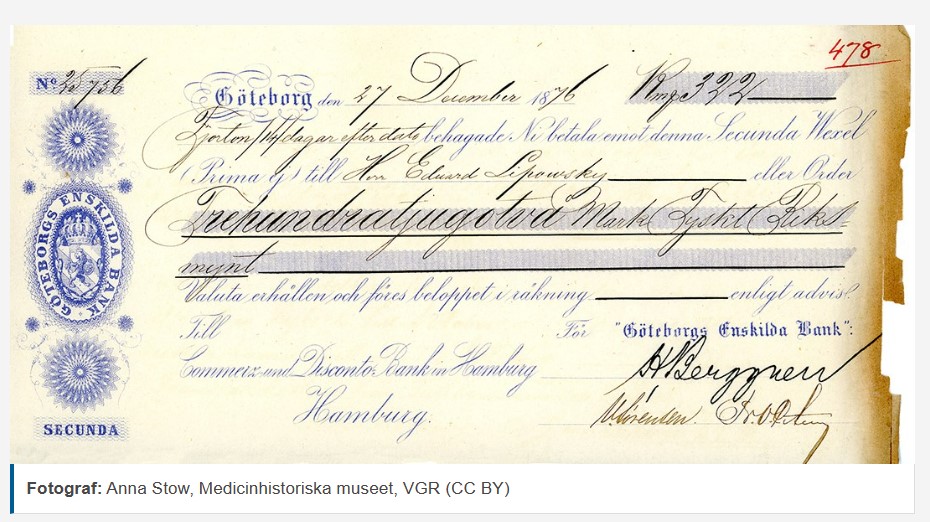 478
Nº 25756
Göteborg den 27 December 1876 Rmk 322
Fjorton/14/dagar efter dato behagade Ni betala emot denna Secunda Wexel
(Prima ej) till Herr Eduard Lipowsky eller Order
Trehundratjugotvå Mark Tyskt Riks-
mynt
Valuta erhållen och föres beloppet i räkning enligt advis.
Till För "Göteborgs Enskilda Bank":
Commerz und Disconto Bank in Hamburg
Hamburg.
H Berggren
GÖTEBORGS ENSKILDA BANK
SECUNDA
Fotograf: Anna Stow, Medicinhistoriska museet, VGR (CC BY)